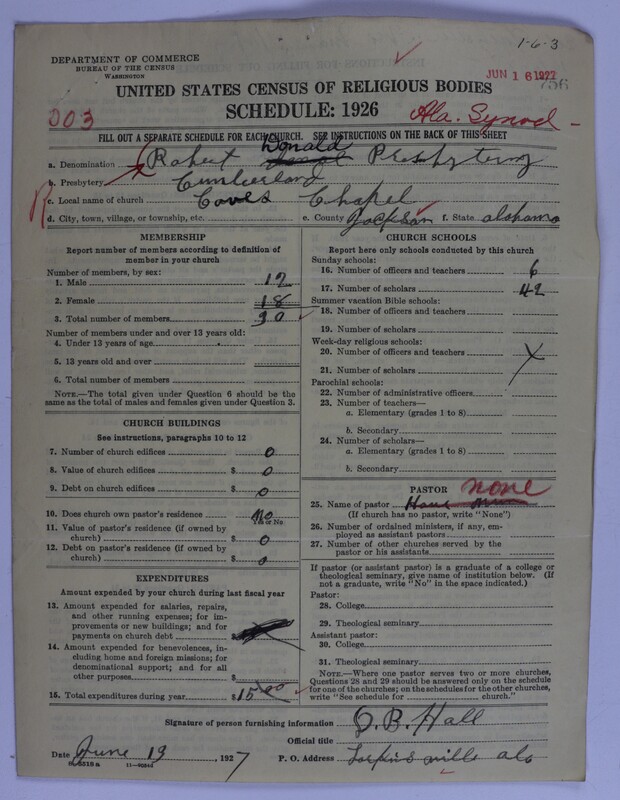 1-6-3
DEPARTMENT OF COMMERCE
BUREAU OF THE CENSUS
WASHINGTON
JUN 16 1927
756
UNITED STATES CENSUS OF RELIGIOUS BODIES
SCHEDULE: 1926
003
Ala. Synod -
FILL OUT A SEPARATE SCHEDULE FOR EACH CHURCH. SEE INSTRUCTIONS ON THE BACK OF THIS SHEET
a. Denomination Robert Donald Presbytery
b. Presbytery Cumberland
c. Local name of church Coves Chapel
d. City, town, village, or township, etc. e. County Jackson f. State alabama
R
MEMBERSHIP
Report number of members according to definition of
member in your church
Number of members, by sex:
1. Male 12
2. Female 18
3. Total number of members 30
Number of members under and over 13 years old:
4. Under 13 years of age
5. 13 years old and over
6. Total number of members
NOTE.—The total given under Question 6 should be the
same as the total of males and females given under Question 3.
CHURCH BUILDINGS
See instructions, paragraphs 10 to 12
7. Number of church edifices 0
8. Value of church edifices $ 0
9. Debt on church edifices $ 0
10. Does church own pastor's residence No
Yes or No
11. Value of pastor's residence (if owned by
church) $ 0
12. Debt on pastor's residence (if owned by
church) $ 0
EXPENDITURES
Amount expended by your church during last fiscal year
13. Amount expended for salaries, repairs,
and other running expenses; for im-
provements or new buildings; and for
payments on church debt $
14. Amount expended for benevolences, in-
cluding home and foreign missions; for
denominational support; and for all
other purposes $
15. Total expenditures during year $ 15.00
CHURCH SCHOOLS
Report here only schools conducted by this church
Sunday schools:
16. Number of officers and teachers 6
17. Number of scholars 42
Summer vacation Bible schools:
18. Number of officers and teachers
19. Number of scholars
Week-day religious schools:
20. Number of officers and teachers
21. Number of scholars
Parochial schools:
22. Number of administrative officers
23. Number of teachers—
a. Elementary (grades 1 to 8)
b. Secondary
24. Number of scholars—
a. Elementary (grades 1 to 8)
b. Secondary
PASTOR none
25. Name of pastor
(If church has no pastor, write "None")
26. Number of ordained ministers, if any, em-
ployed as assistant pastors
27. Number of other churches served by the
pastor or his assistants
If pastor (or assistant pastor) is a graduate of a college or
theological seminary, give name of institution below. (If
not a graduate, write "No" in the space indicated.)
Pastor:
28. College
29. Theological seminary
Assistant pastor:
30. College
31. Theological seminary
NOTE.—Where one pastor serves two or more churches,
Questions 28 and 29 should be answered only on the schedule
for one of the churches; on the schedules for the other churches,
write "See schedule for church."
Signature of person furnishing information J. B. Hall
Official title
Date June 13 , 1927 P. O. Address Larkins ville ala
11—9284